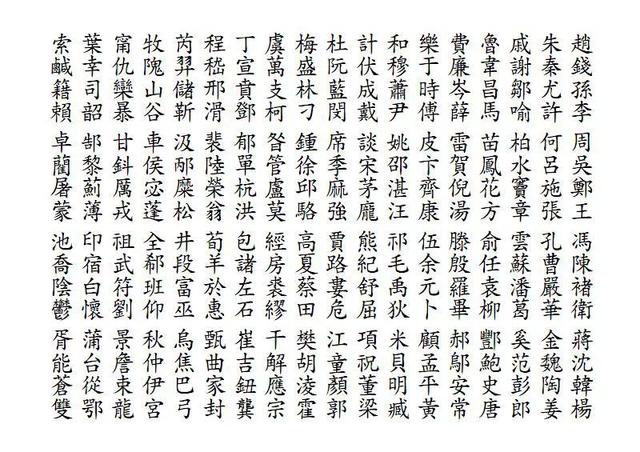 趙錢孫李 周吳鄭王 馮陳褚衛 蔣沈韓楊
朱秦尤許 何呂施張 孔曹嚴華 金魏陶姜
戚謝鄒喻 柏水竇章 雲蘇潘葛 奚范彭郎
魯韋昌馬 苗鳳花方 俞任袁柳 酆鮑史唐
費廉岑薛 雷賀倪湯 滕殷羅畢 郝鄔安常
樂于時傅 皮卞齊康 伍余元卜 顧孟平黃
和穆蕭尹 姚邵湛汪 祁毛禹狄 米貝明臧
計伏成戴 談宋茅龐 熊紀舒屈 項祝董梁
杜阮藍閔 席季麻強 賈路婁危 江童顏郭
梅盛林刁 鍾徐邱駱 高夏蔡田 樊胡淩霍
虞萬支柯 昝管盧莫 經房裘繆 干解應宗
丁宣賁鄧 郁單杭洪 包諸左石 崔吉鈕龔
程嵇邢滑 裴陸榮翁 荀羊於惠 甄曲家封
芮羿儲靳 汲邴糜松 井段富巫 烏焦巴弓
牧隗山谷 車侯宓蓬 全郗班仰 秋仲伊宮
甯仇欒暴 甘鈄厲戎 祖武符劉 景詹束龍
葉幸司韶 郜黎薊薄 印宿白懷 蒲台從鄂
索鹹籍賴 卓藺屠蒙 池喬陰鬱 胥能蒼雙